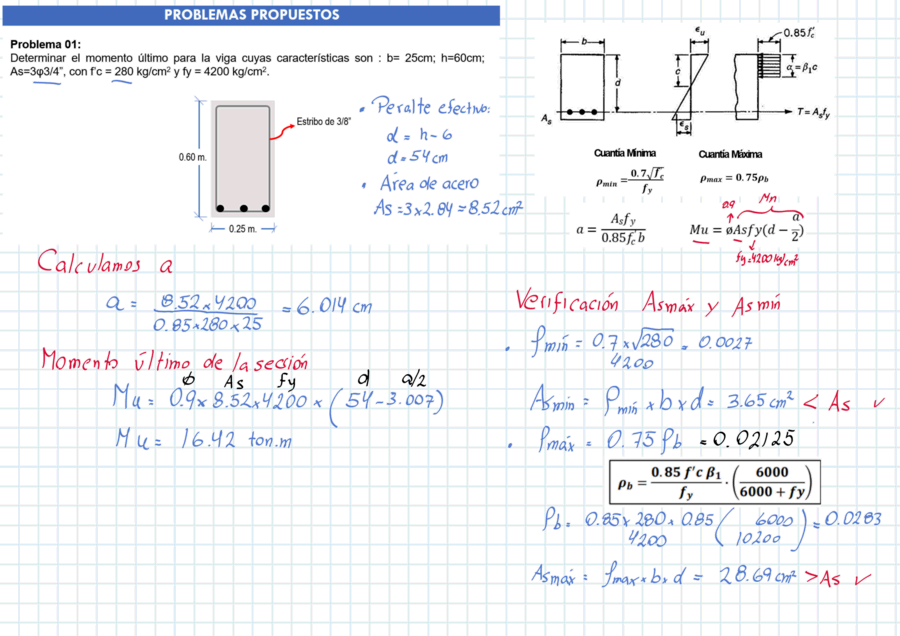 PROBLEMAS PROPUESTOS
Problema 01:
Determinar el momento último para la viga cuyas características son : b= 25cm; h=60cm;
As=3φ3/4", con f'c = 280 kg/cm² y fy = 4200 kg/cm².
0.60 m.
Estribo de 3/8"
0.25 m.
• Peralte efectivo:
d = h-6
d = 54 cm
• Área de acero
As = 3 x 2.84 = 8.52 cm²
b
d
As
εu
c
εs
0.85f'c
a = β₁c
T = Asfy
Cuantía Mínima
ρmin = 0.7√f'c / fy
Cuantía Máxima
ρmax = 0.75ρb
a = Asfy / 0.85f'c b
0.9
Mn
Mu = øAsfy(d − a/2)
fy=4200 kg/cm²
Calculamos a
a = 8.52 x 4200 / 0.85 x 280 x 25 = 6.014 cm
Momento último de la sección
ϕ As fy d a/2
Mu = 0.9 x 8.52 x 4200 x (54 - 3.007)
Mu = 16.42 ton.m
Verificación Asmáx y Asmín
• ρmín = 0.7 x √280 / 4200 = 0.0027
Asmin = ρmín x b x d = 3.65 cm² < As ✓
• ρmáx = 0.75 ρb = 0.02125
ρb = 0.85 f'c β1 / fy · (6000 / 6000 + fy)
ρb = 0.85 x 280 x 0.85 / 4200 (6000 / 10200) = 0.0283
Asmáx = ρmax x b x d = 28.69 cm² > As ✓